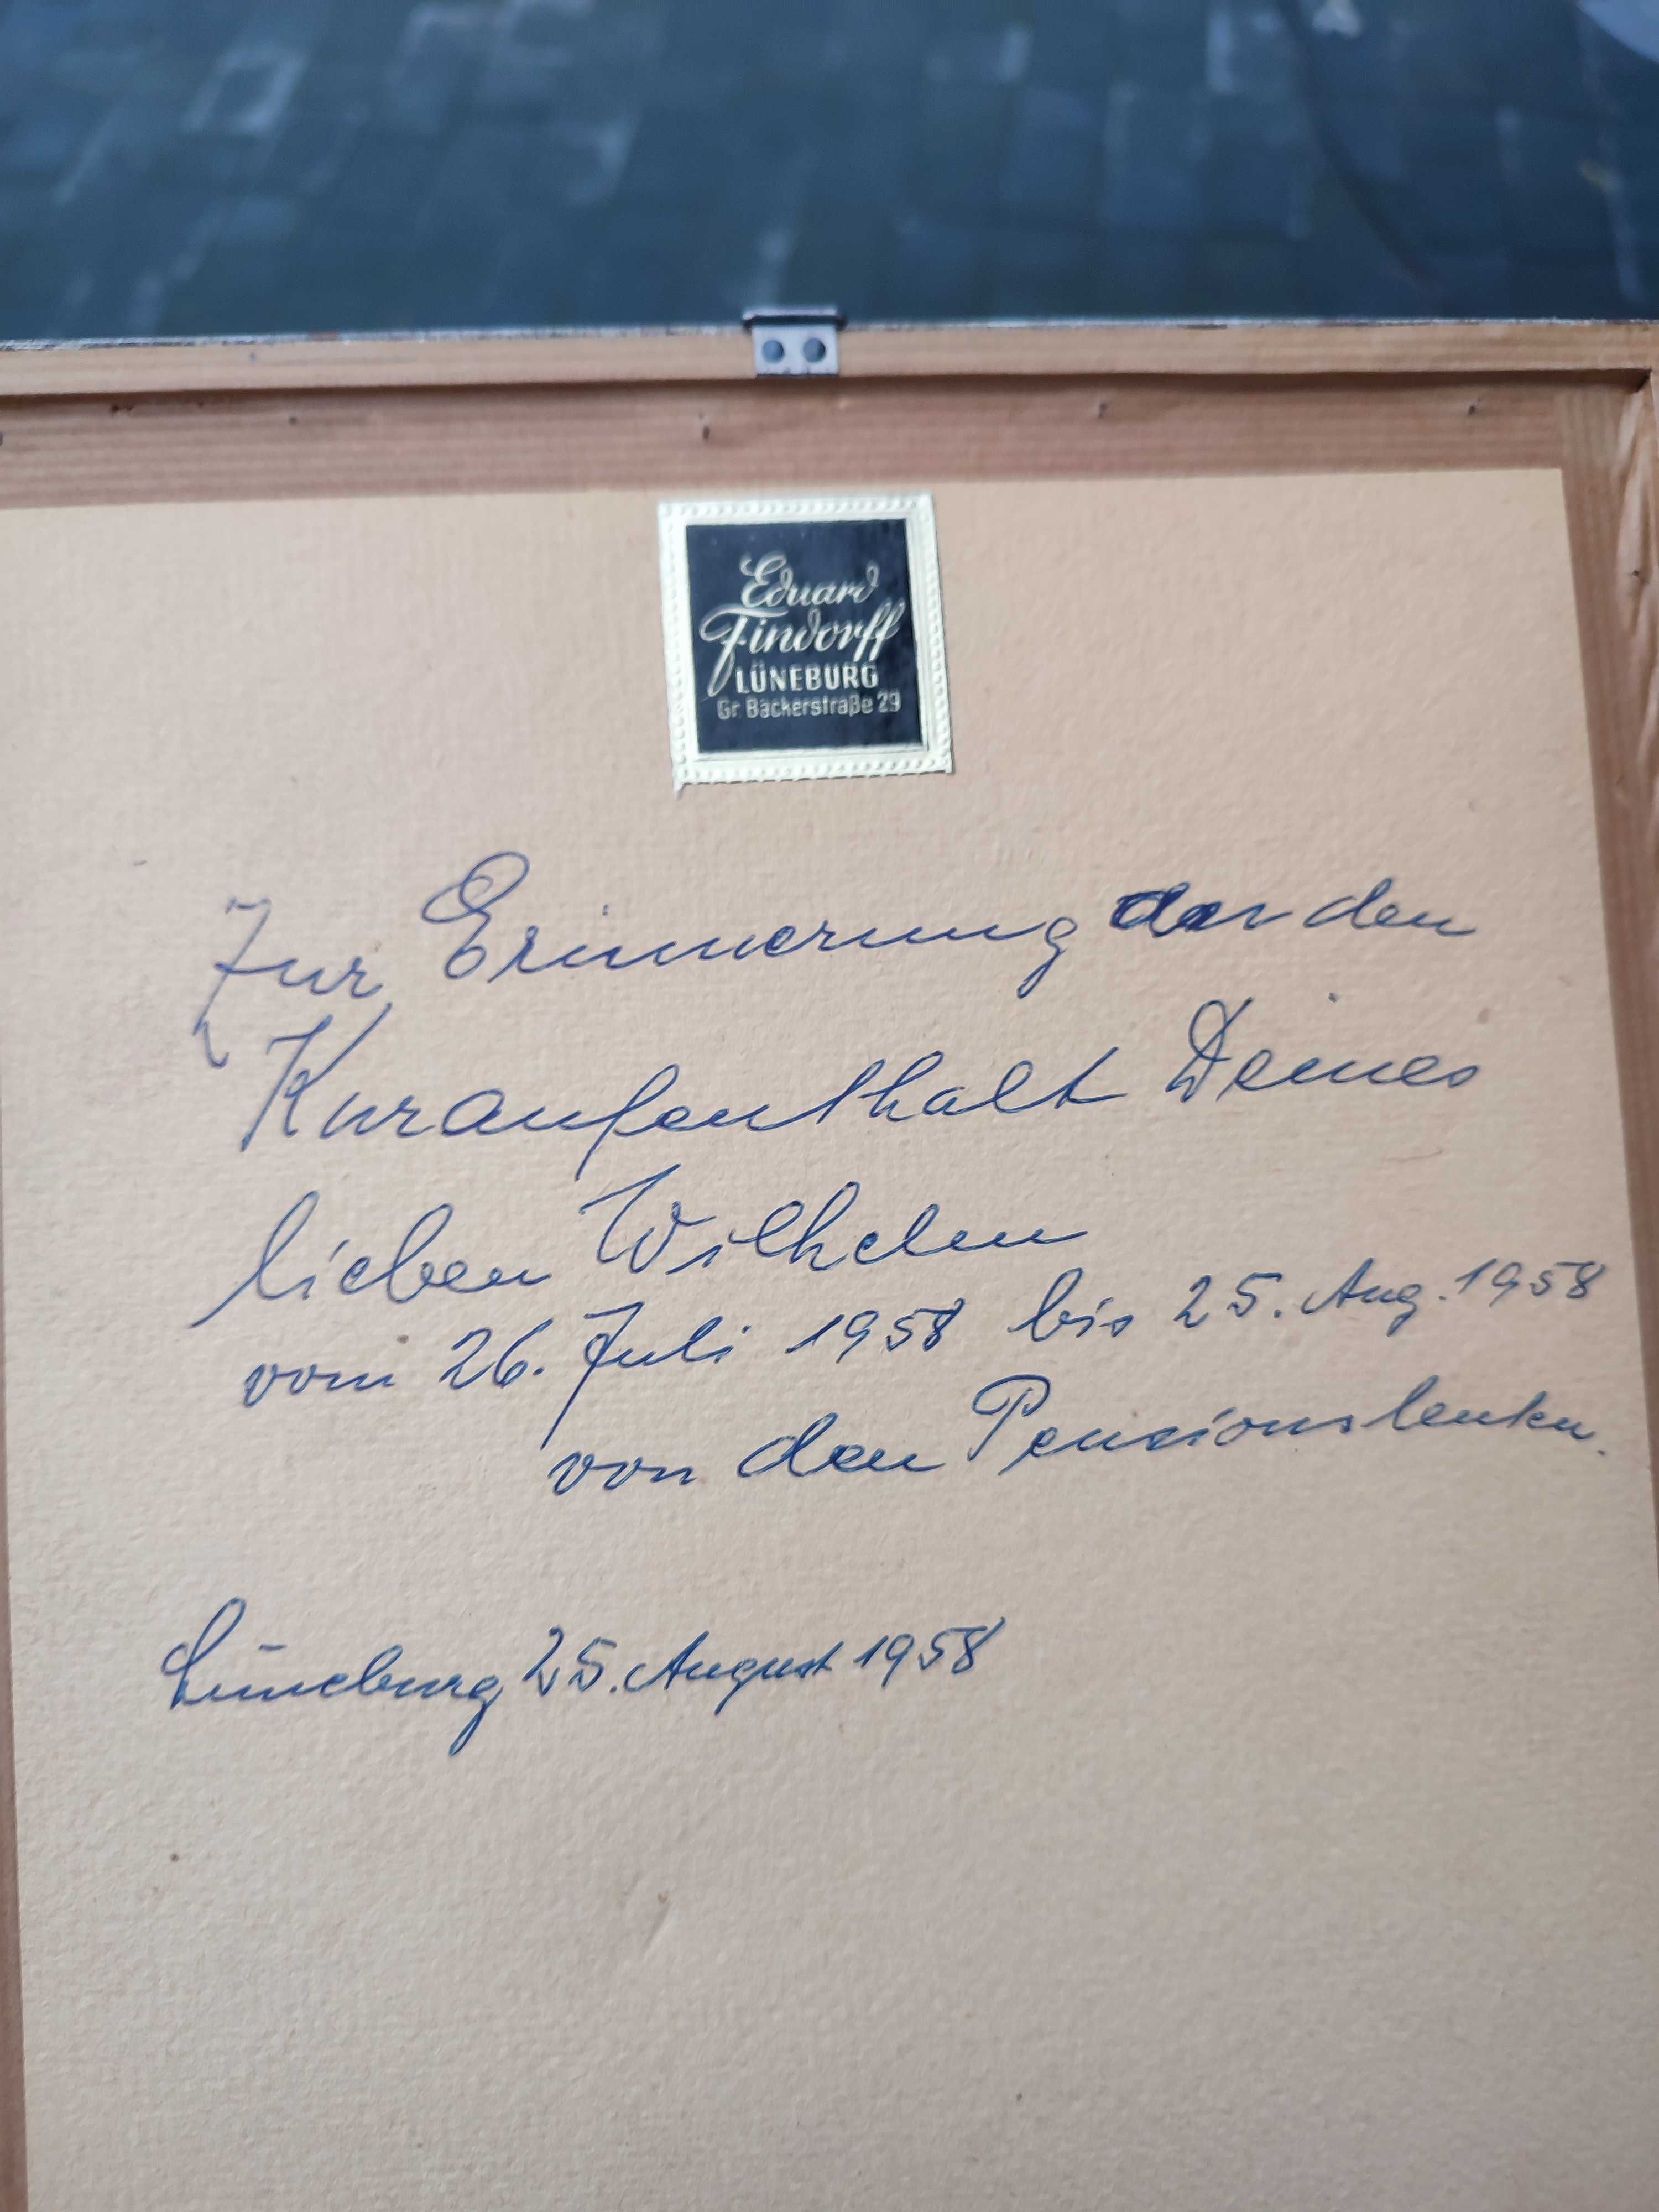 Eduard
Findorff
LÜNEBURG
Gr. Bäckerstraße 29
Zur Erinnerung an den
Kuraufenthalt Deines
lieben Wilhelm
vom 26. Juli 1958 bis 25. Aug. 1958
von den Pensionsleuten.
Lüneburg 25. August 1958